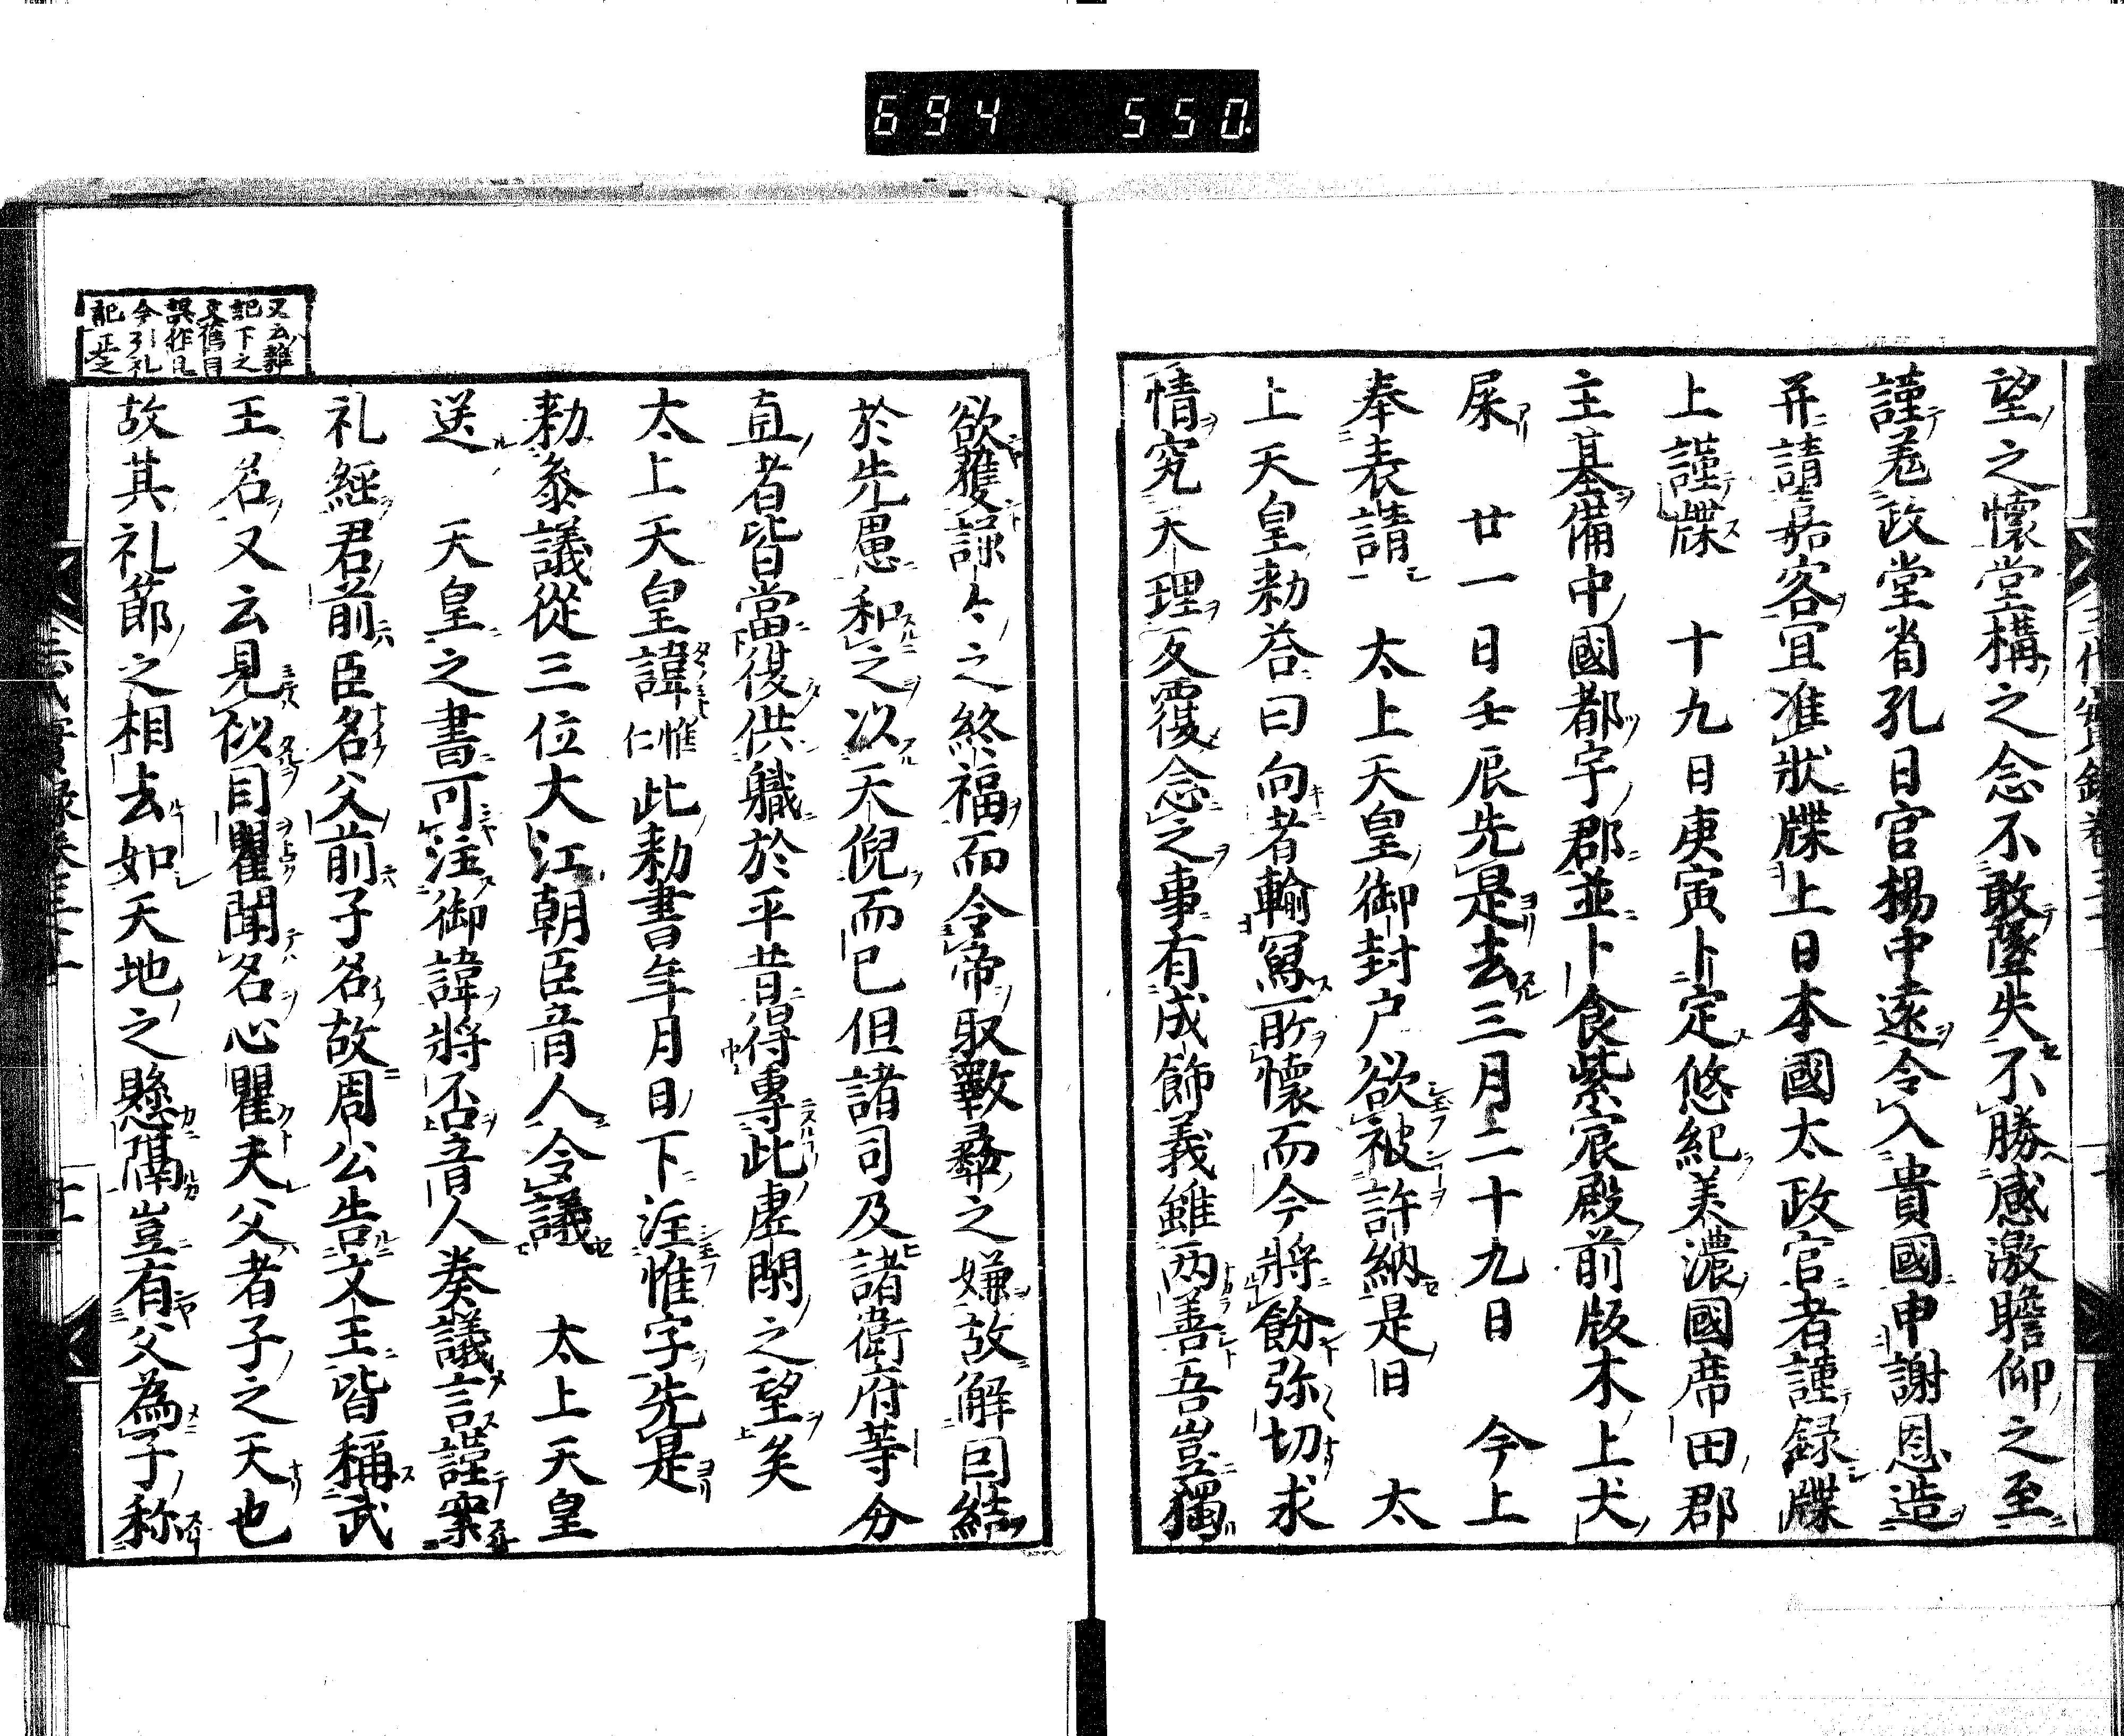 694 550
望之懷堂構之念不敢墜失不勝感激瞻仰之至
謹差政堂省孔目官楊中遠令入貴國申謝恩造
并請嘉客宜准狀牒上日本國太政官者謹録牒
上謹牒　十九日庚寅卜定悠紀美濃國席田郡
主基備中國都宇郡並卜食紫宸殿前版木上犬
屎　廿一日壬辰先是去三月二十九日　今上
奉表請　太上天皇御封戸欲被許納是日　太
上天皇勅荅曰向者輸冩所懷而今將飭弥切求
情究天理反覆念之事有成飾義雖两善吾豈獨
欲獲謙々之終福而令帝取斁彝之嫌故解囙結
於先愚和之以天倪而已但諸司及諸衛府等分
直者皆當復供職於平昔得專此虚閑之望矣
太上天皇諱惟仁此勅書年月日下注惟字先是
勅叅議從三位大江朝臣音人令議　太上天皇
送　天皇之書可注御諱將否音人奏議言謹案
礼經君前臣名父前子名故周公告文王皆稱武
王名又云見似目瞿聞名心瞿夫父者子之天也
故其礼節之相去如天地之懸隔豈有父為子称
又云雜
記下之
文舊目
誤作見
今引礼
記正之